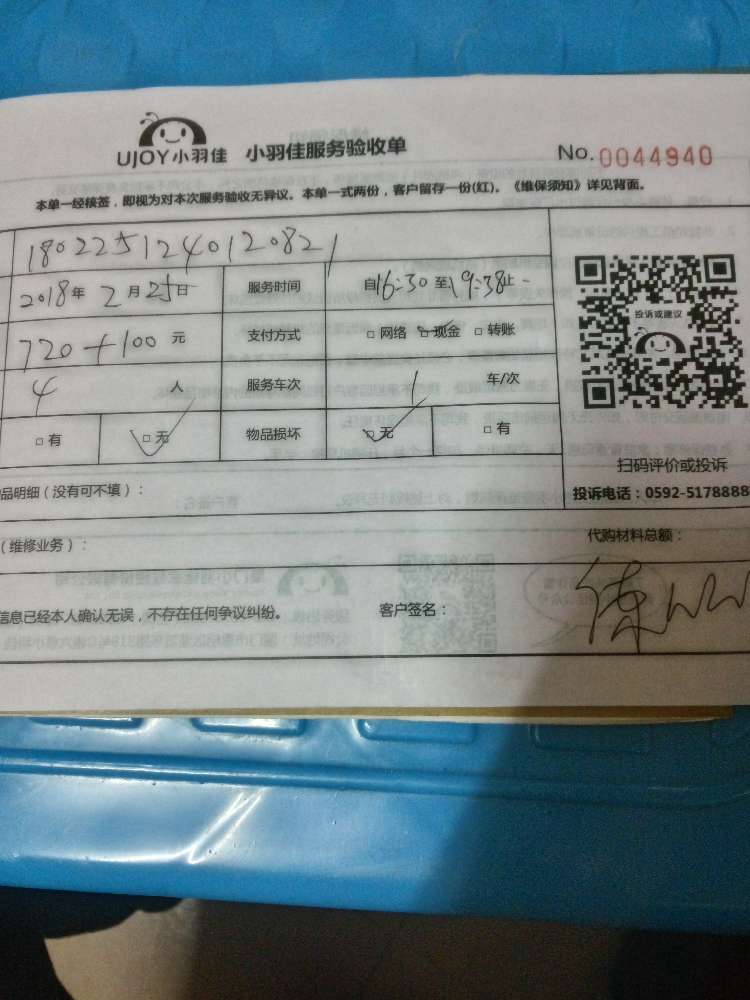 UJOY小羽佳 小羽佳服务验收单 No. 0044940
本单一经核签，即视为对本次服务验收无异议。本单一式两份，客户留存一份(红)。《维保须知》详见背面。
1802251240120821
2018年2月25日 服务时间 自16:30至19:38止
720+100元 支付方式 □网络 □现金 □转账
投诉或建议
4人 服务车次 1 车/次
□有 □无 物品损坏 □无 □有
扫码评价或投诉
品明细（没有可不填）：
投诉电话：0592-5178888
（维修业务）：
代购材料总额：
信息已经本人确认无误，不存在任何争议纠纷。 客户签名：